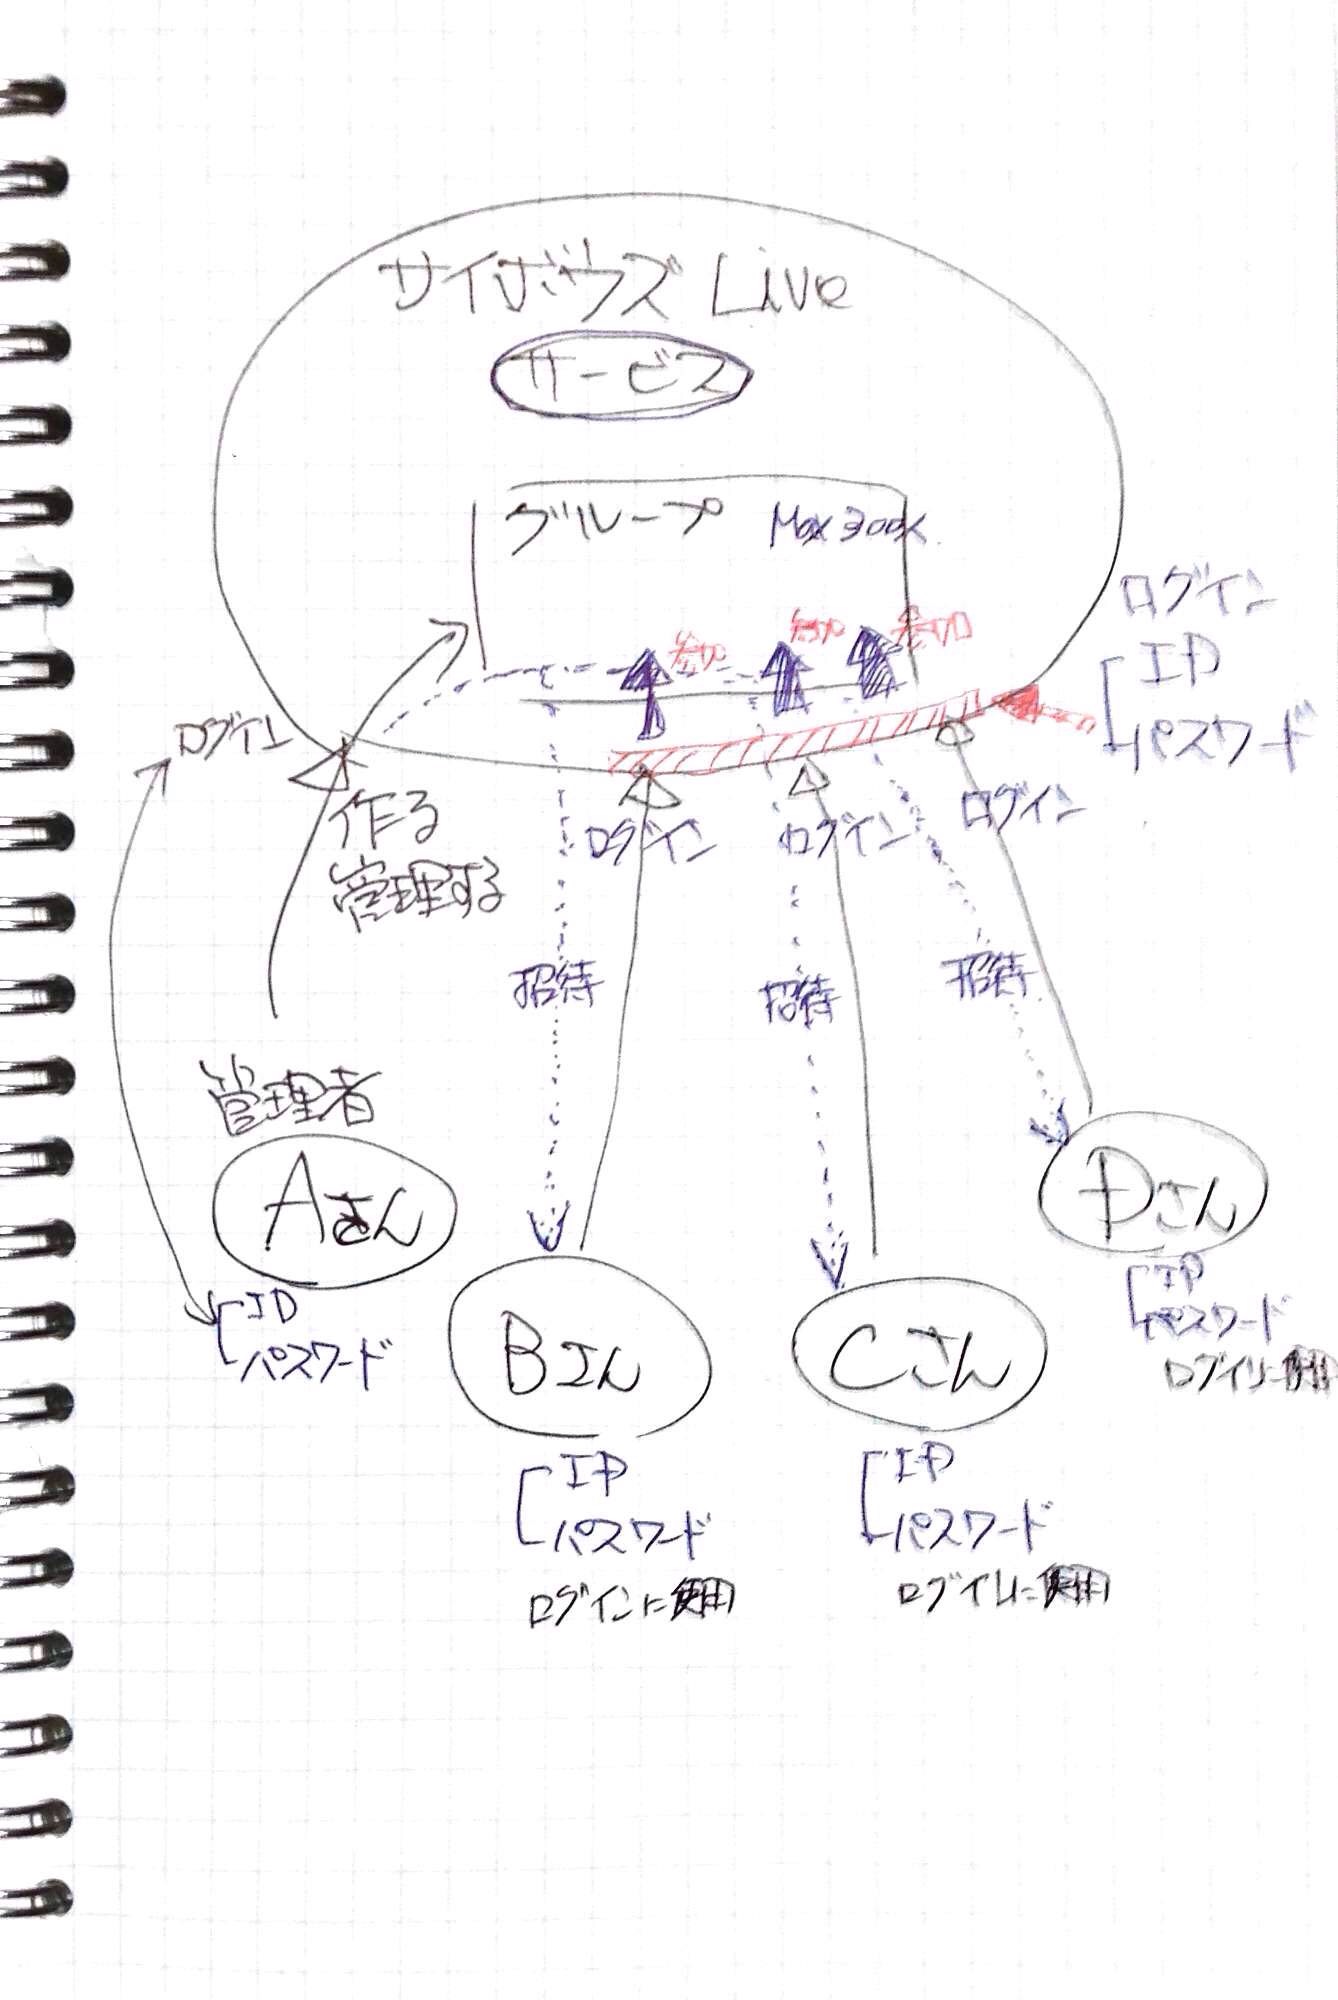 サイボウズ Live
サービス
グループ Max 300人
参加 参加 参加
ログイン
ID
パスワード
ログイン
作る
管理する
ログイン
ログイン
ログイン
招待
招待
招待
管理者
Aさん
ID
パスワード
Bさん
ID
パスワード
ログインに使用
Cさん
ID
パスワード
ログインに使用
Dさん
ID
パスワード
ログインに使用